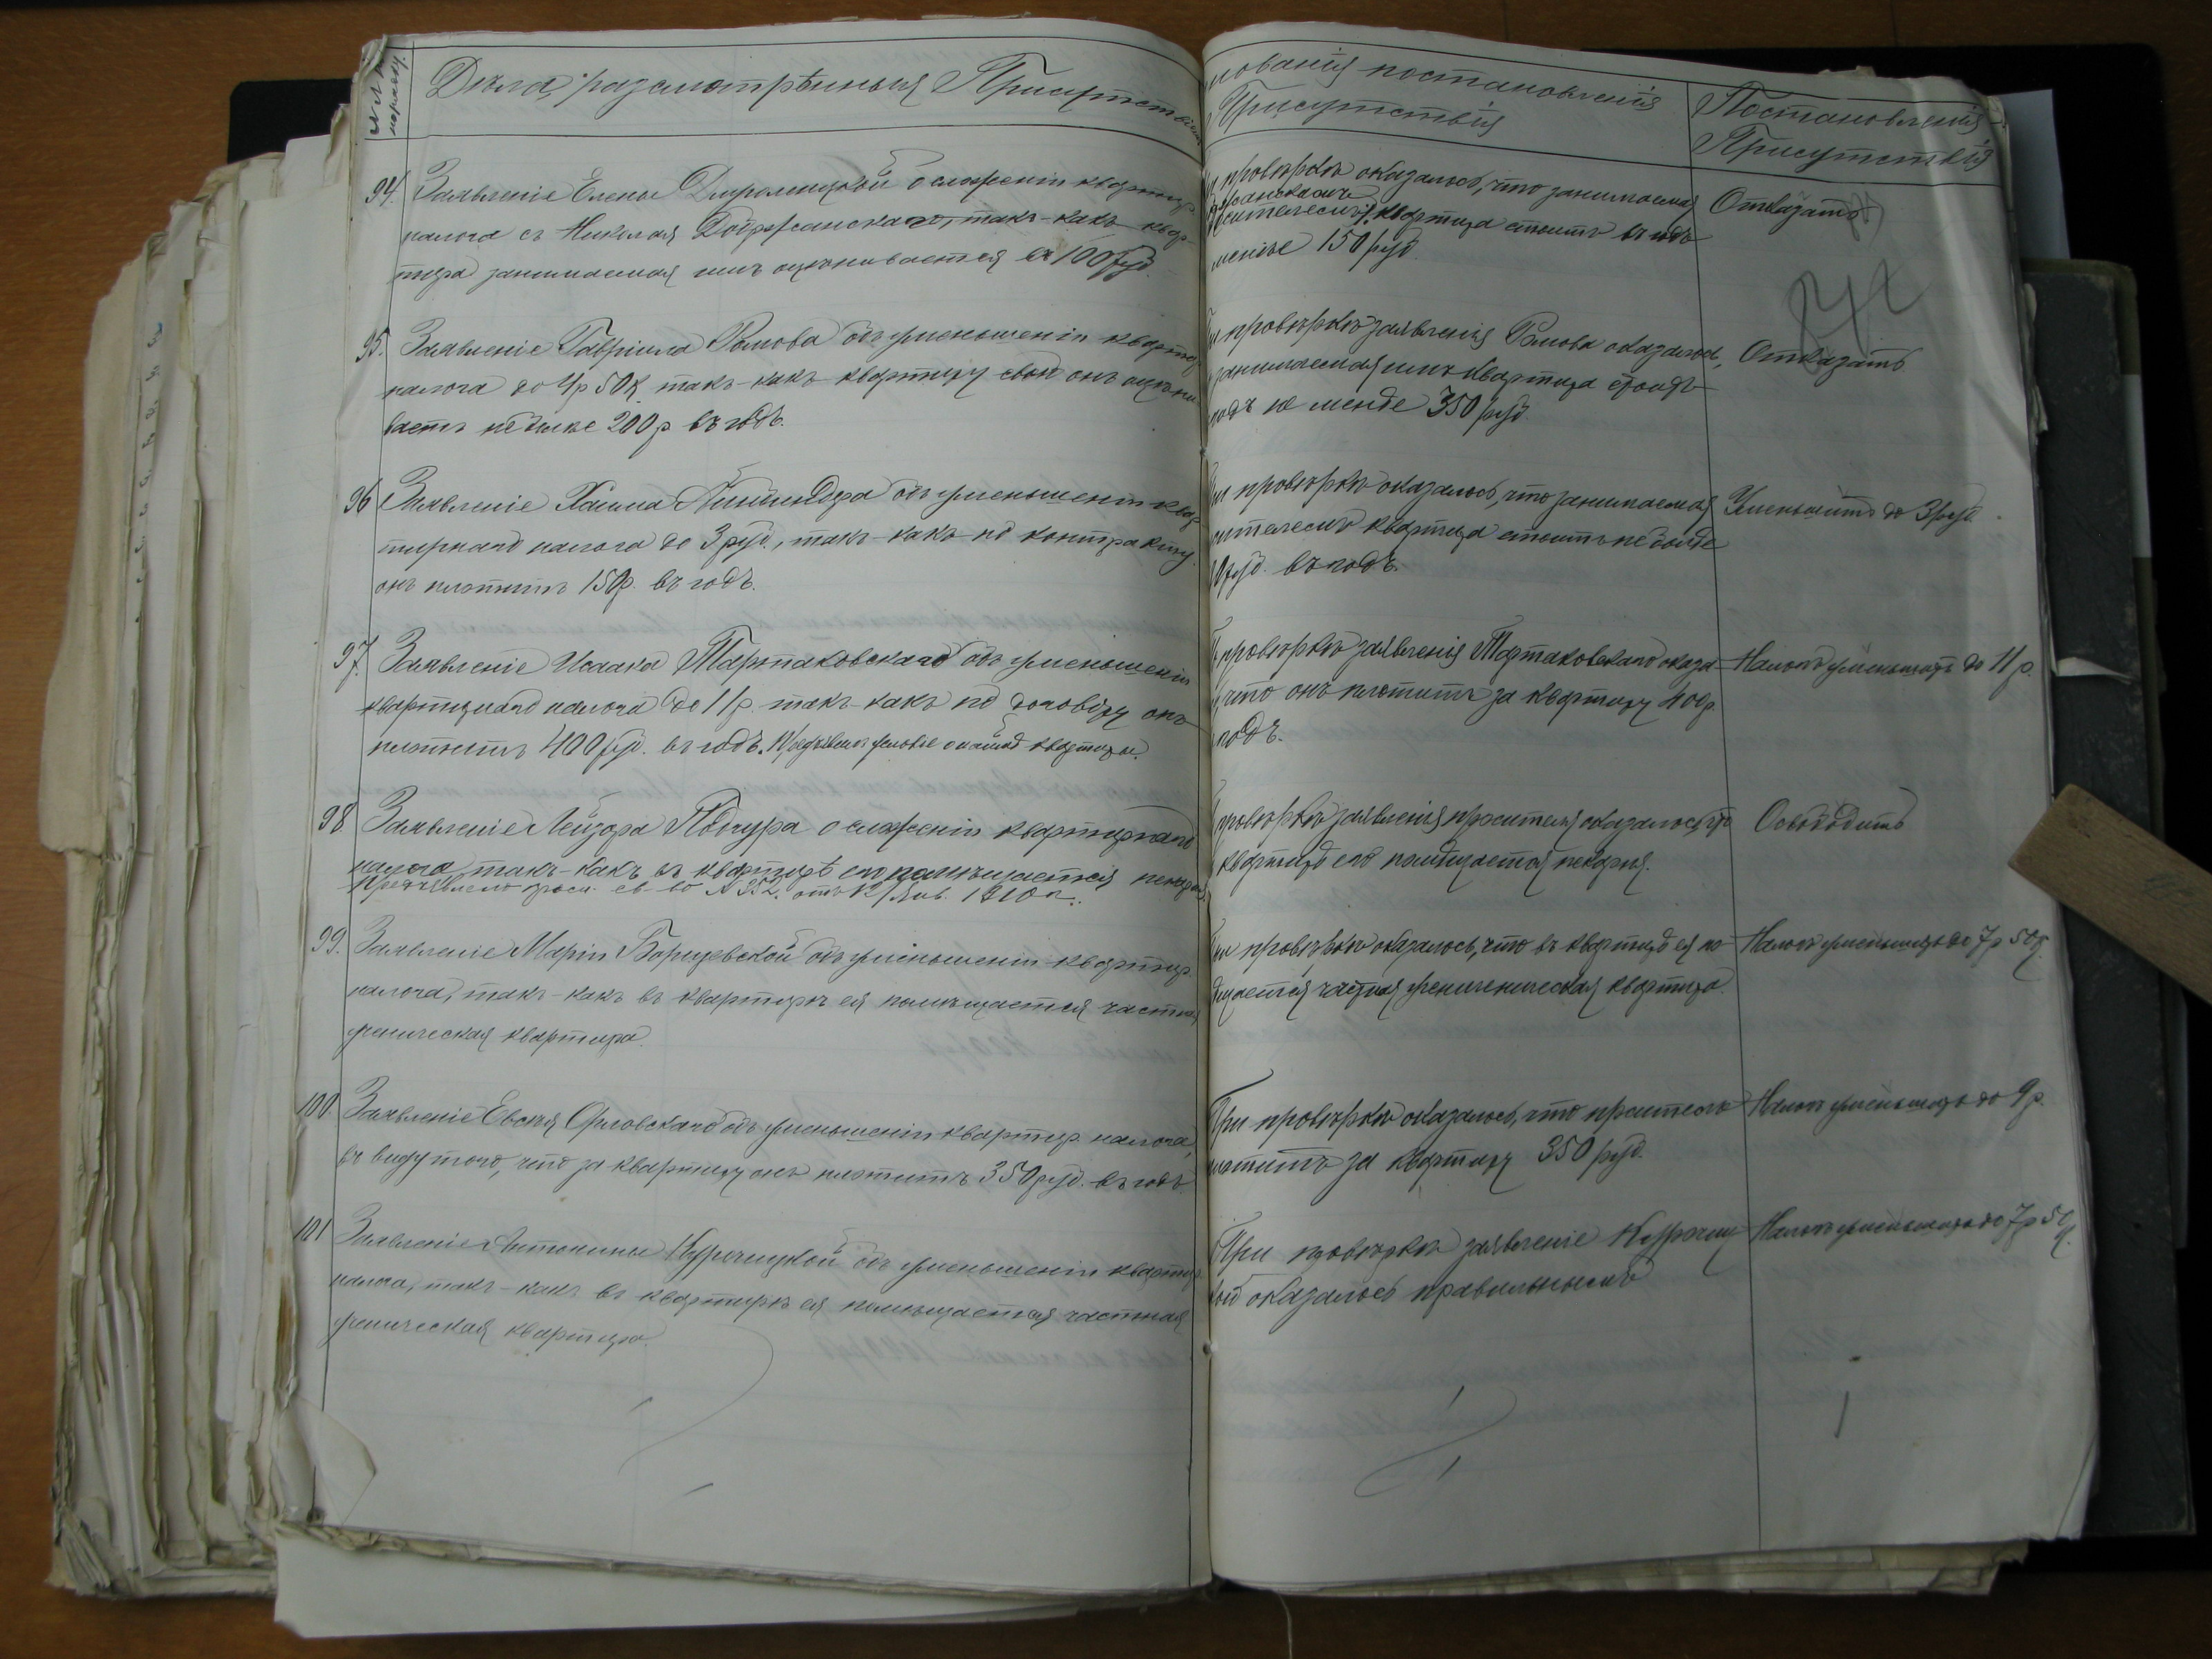 №№ по порядку.
Дѣла, разсмотрѣнныя Присутствіем
94. Заявленіе Елены о сложеніи квартир.
налога съ Николая Доброжанскаго, такъ-какъ квар-
тира занимаемая имъ оцѣнивается въ 100 руб.
95. Заявленіе Гавріила Рамова объ уменьшеніи квартир
налога до 4р 50к. такъ-какъ квартиру свою онъ оцѣни
ваетъ не болѣе 200 р. въ годъ.
96 Заявленіе Хаима объ уменьшеніи квар
тирнаго налога до 3 руб., такъ-какъ по контракту
онъ платитъ 150р. въ годъ.
97. Заявленіе Исаака Тартаковскаго объ уменьшеніи
квартирнаго налога до 11 р. такъ-какъ по договору онъ
платитъ 400 руб. въ годъ. условіе о наймѣ квартиры.
98 Заявленіе Лейзора Подгура о сложеніи квартирнаго
налога, такъ-какъ въ квартирѣ его помѣщается пекарня
св-во № 352. отъ 12/Янв. 1910 г.
99. Заявленіе Маріи Борщевской объ уменьшеніи квартир.
налога, такъ-какъ въ квартирѣ ея помѣщается частная
ученическая квартира.
100. Заявленіе Евсѣя Орловскаго объ уменьшеніи квартир. налога,
въ виду того, что за квартиру онъ платитъ 350 руб. въ годъ.
101 Заявленіе Антонины Курочицкой объ уменьшеніи квартир.
налога, такъ-какъ въ квартирѣ ея помѣщается частная
ученическая квартира.
нованія постановленія
Присутствія
и провѣркѣ оказалось, что занимаемая
квартира стоитъ въ годъ
менѣе 150 руб.
и провѣркѣ заявленія Рамова оказалось,
занимаемая имъ квартира стоитъ
годъ не менѣе 350 руб.
и провѣркѣ оказалось, что занимаемая
сителемъ квартира стоитъ не болѣе
0 руб. въ годъ.
провѣркѣ заявленія Тартаковскаго оказа-
что онъ платитъ за квартиру 400 р.
годъ.
провѣркѣ заявленія просителя оказалось, что
квартирѣ его помѣщается пекарня.
и провѣркѣ оказалось, что въ квартирѣ ея по-
мѣщается частная ученическая квартира.
При провѣркѣ оказалось, что проситель
платитъ за квартиру 350 руб.
При провѣркѣ заявленіе Курочиц
кой оказалось правильнымъ
Постановленія
Присутствія
Отказать
Отказать.
Уменьшить до 3 руб.
Налогъ уменьшить до 11 р.
Освободить
Налогъ уменьшить до 7 р 50 к.
Налогъ уменьшить до 9 р.
Налогъ уменьшить до 7 р 50 к.